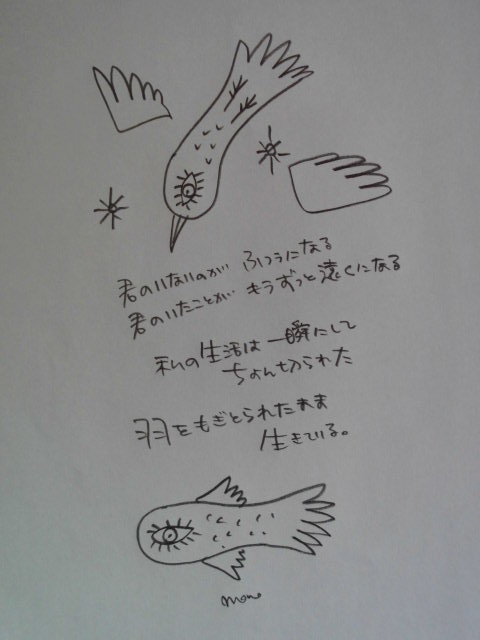 君のいないのが ふつうになる
君のいたことが もうずっと遠くになる
私の生活は一瞬にして
ちょん切られた
羽をもぎとられたまま
生きている。
momo